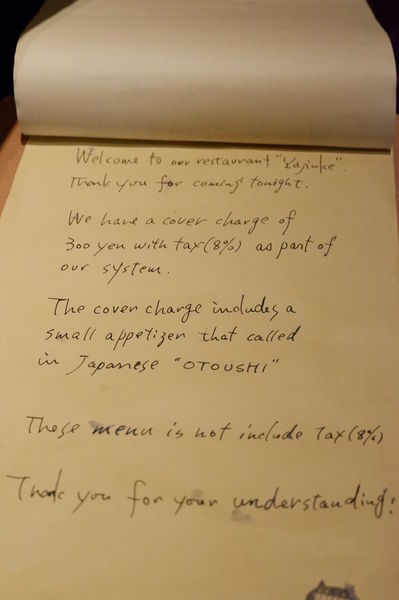 Welcome to our restaurant "Yajinke".
Thank you for coming tonight.
We have a cover charge of
300 yen with tax(8%) as part of
our system.
The cover charge includes a
small appetizer that called
in Japanese "OTOUSHI"
These menu is not include Tax(8%)
Thank you for your understanding!